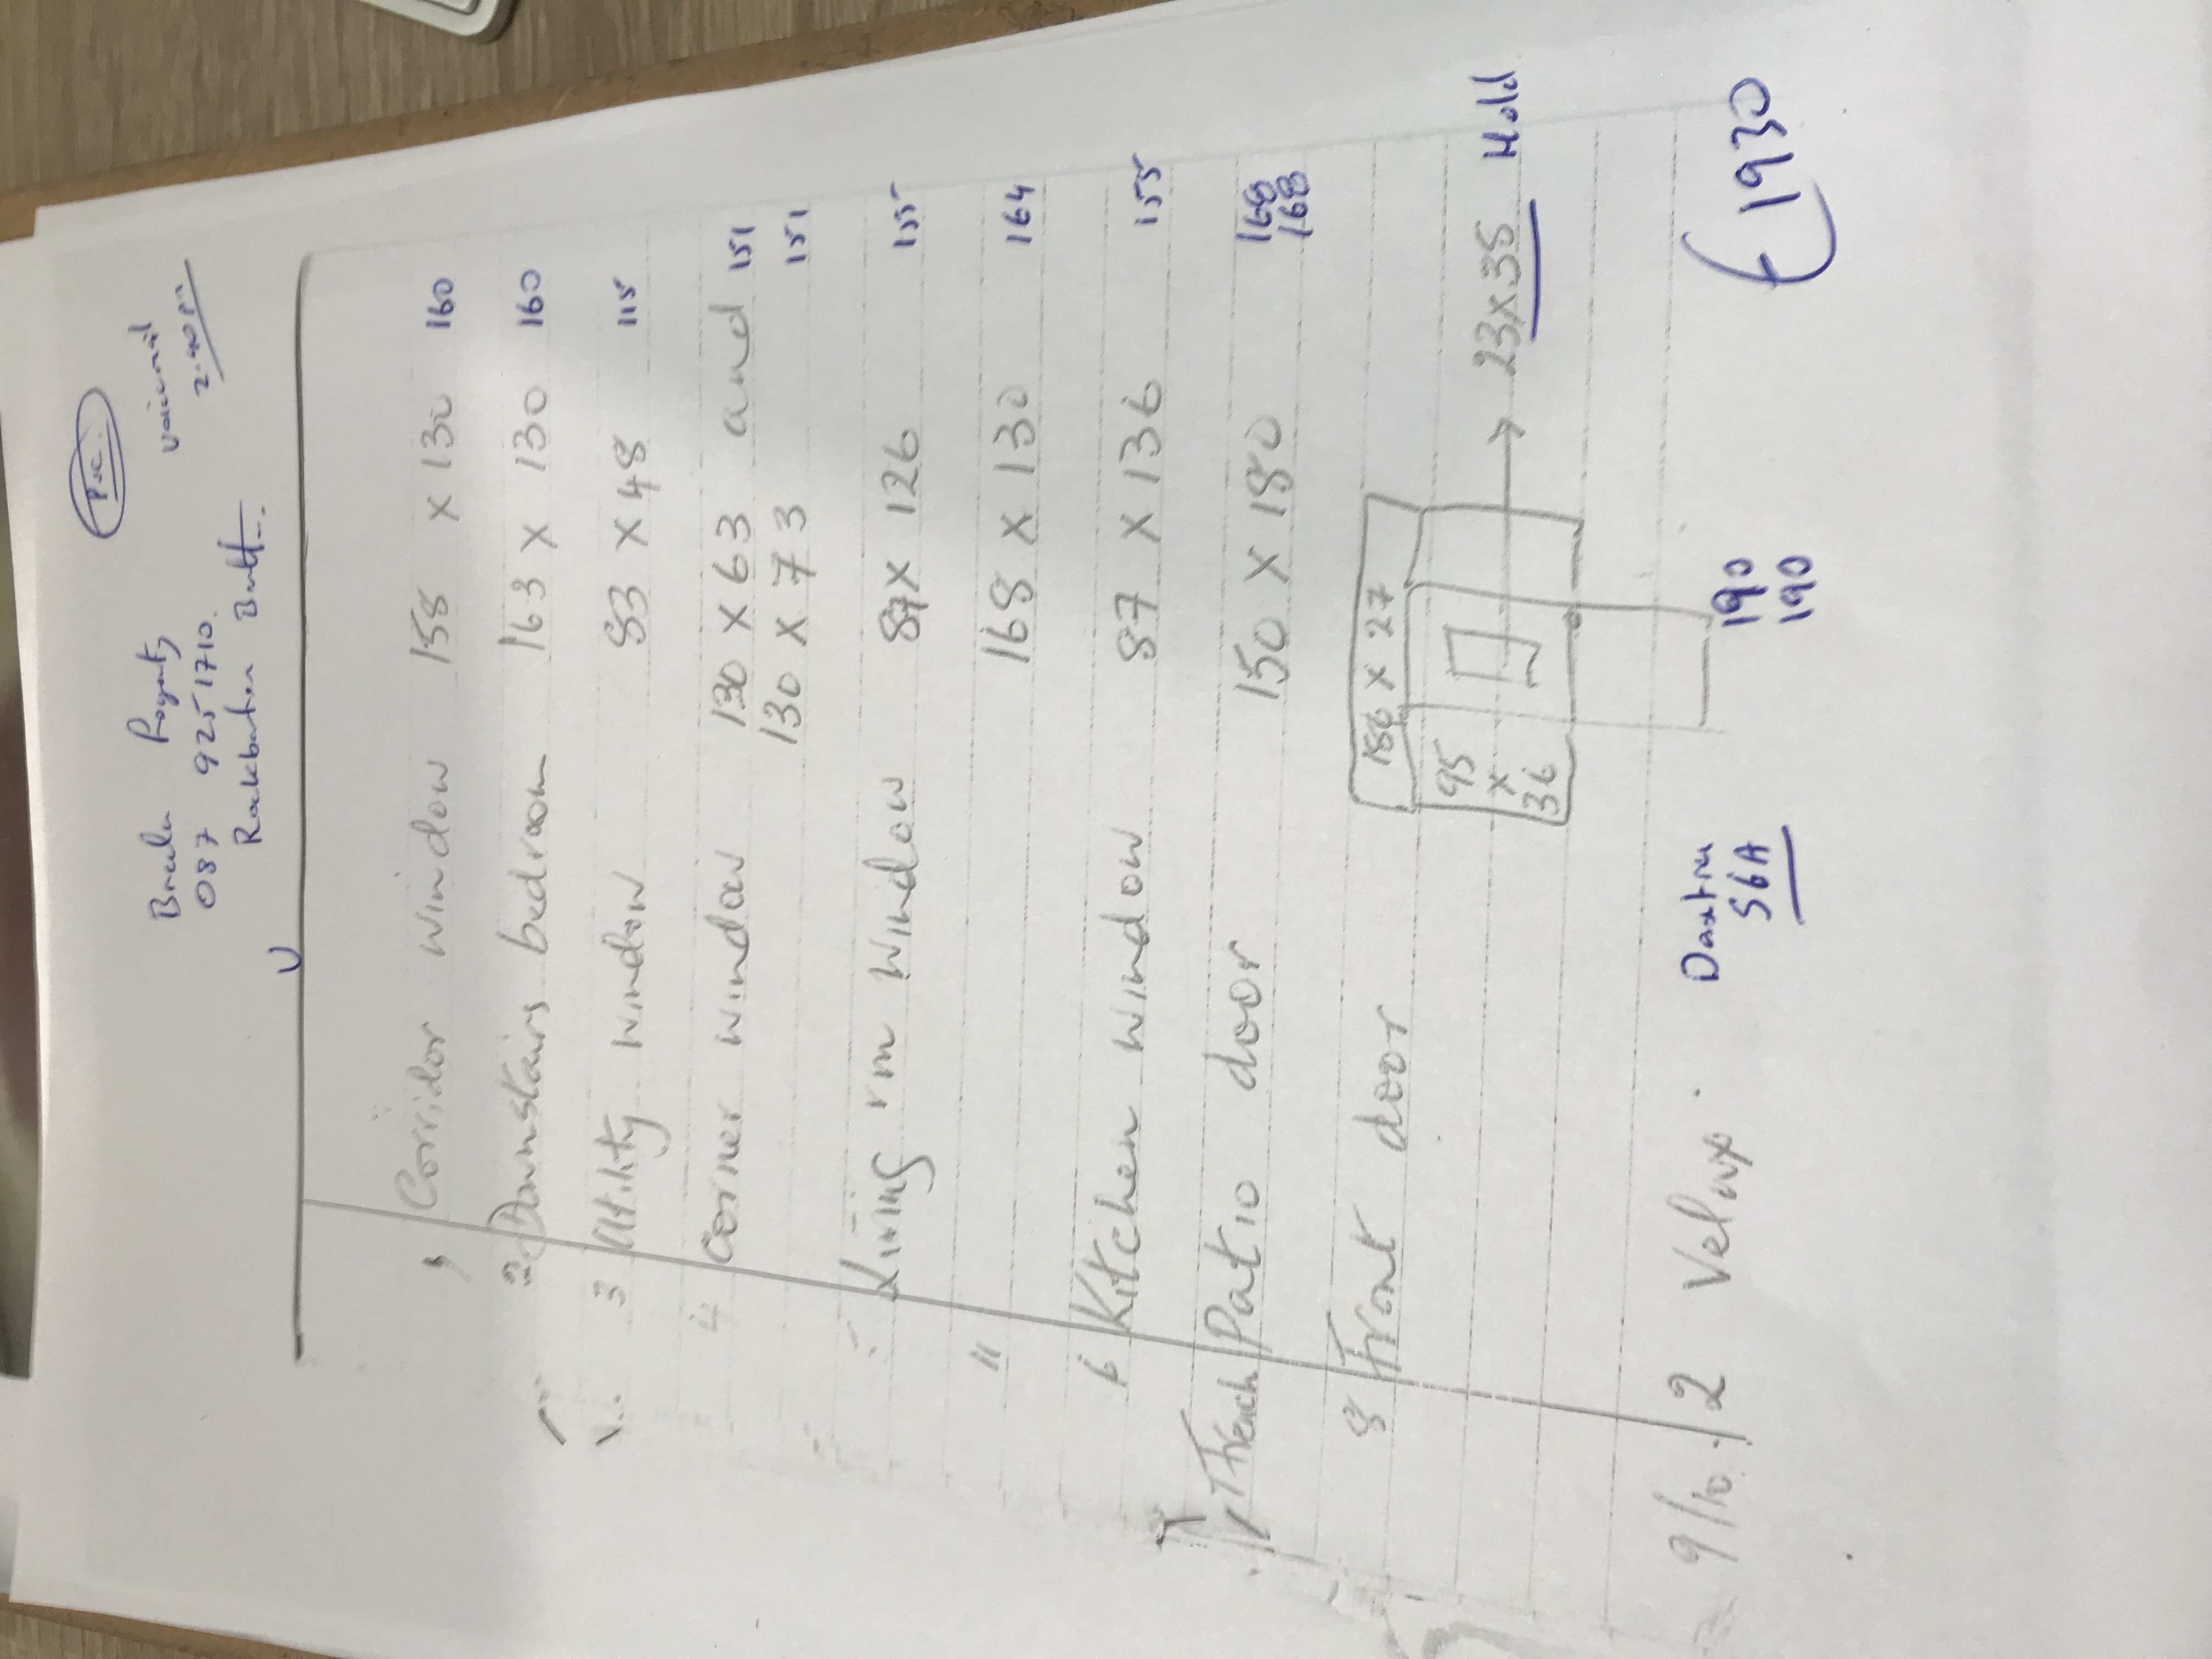 PVC
Voicemail
2.40pm
Property
087 925 1710.
V
1 Corridor window 158 x 130 160
2 Downstairs bedroom 163 x 130 160
3 Utility window 83 x 48 115
4 Corner window 130 x 63 and 151
130 x 73 151
Living rm window 87 x 126 155
11 168 x 130 164
6 Kitchen window 87 x 136 155
French Patio door 150 x 180 168
168
8 Front door
186 x 27
95
x
36
→ 23x35 Hold
9/10. 2 Velux.
S6A
190
190
€1930